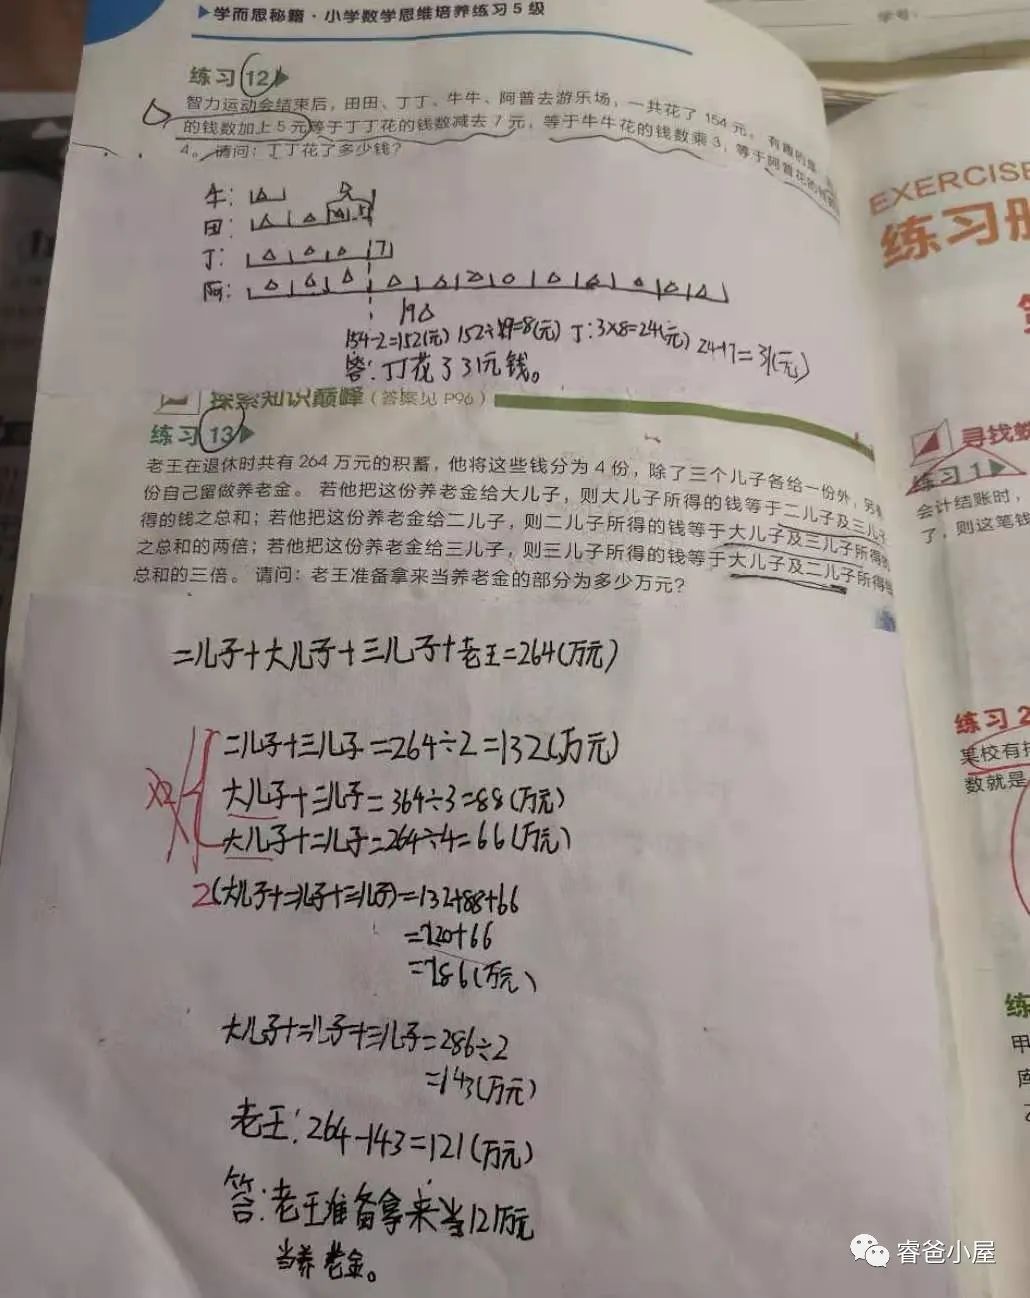 ▶学而思秘籍·小学数学思维培养练习5级
学号:
练习12▶
智力运动会结束后，田田、丁丁、牛牛、阿普去游乐场，一共花了154元。有趣的是
的钱数加上5元等于丁丁花的钱数减去7元，等于牛牛花的钱数乘3，等于阿普花的钱数
4。请问：丁丁花了多少钱？
牛:
田:
丁: 7
阿:
19△
154-2=152(元) 152÷19=8(元) 丁:3×8=24(元) 24+7=31(元)
答:丁花了31元钱。
探索知识巅峰(答案见P96)
练习13▶
老王在退休时共有264万元的积蓄，他将这些钱分为4份，除了三个儿子各给一份外，另
份自己留做养老金。若他把这份养老金给大儿子，则大儿子所得的钱等于二儿子及三儿子
得的钱之总和；若他把这份养老金给二儿子，则二儿子所得的钱等于大儿子及三儿子所得的
之总和的两倍；若他把这份养老金给三儿子，则三儿子所得的钱等于大儿子及二儿子所得
总和的三倍。请问：老王准备拿来当养老金的部分为多少万元？
二儿子+大儿子+三儿子+老王=264(万元)
二儿子+三儿子=264÷2=132(万元)
大儿子+三儿子=364÷3=88(万元)
大儿子+二儿子=264÷4=66(万元)
2(大儿子+二儿子+三儿子)=132+88+66
=220+66
=286(万元)
大儿子+二儿子+三儿子=286÷2
=143(万元)
老王:264-143=121(万元)
答:老王准备拿来当121万元
当养老金。
EXERCISE
练习册
寻找
练习1▶
会计结账时，
了，则这笔钱
练习2
某校有
数就是
练
甲
库
睿爸小屋